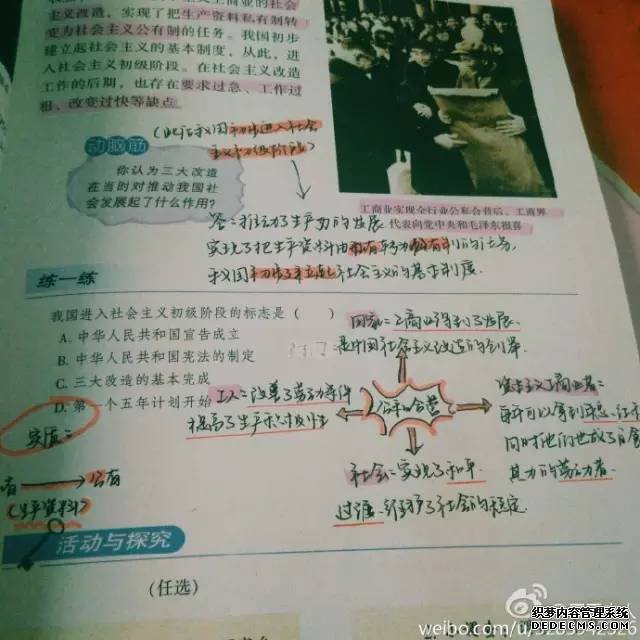 主义改造，实现了把生产资料私有制转
变为社会主义公有制的任务。我国初步
建立起社会主义的基本制度，从此，进
入社会主义初级阶段。在社会主义改造
工作的后期，也存在要求过急、工作过
粗、改变过快等缺点。
动脑筋
你认为三大改造
在当时对推动我国社
会发展起了什么作用？
工商业实现全行业公私合营后，工商界
代表向党中央和毛泽东报喜
答：推动了生产力的发展
实现了把生产资料由私有转为公有制的任务，
我国初步建立起社会主义的基本制度．
练一练
我国进入社会主义初级阶段的标志是（ ）
A. 中华人民共和国宣告成立
B. 中华人民共和国宪法的制定
C. 三大改造的基本完成
D. 第一个五年计划开始
国家：工商业得到了发展、
是中国社会主义改造的创举
工人：改善了劳动条件
提高了生产积极性
公私合营
资本主义工商业者：
同时他们也成了自食
其力的劳动者
社会：实现了和平
过渡、维护了社会的稳定
实质：
公有
（生产资料）
活动与探究
（任选）
织梦内容管理系统
DEDECMS.COM